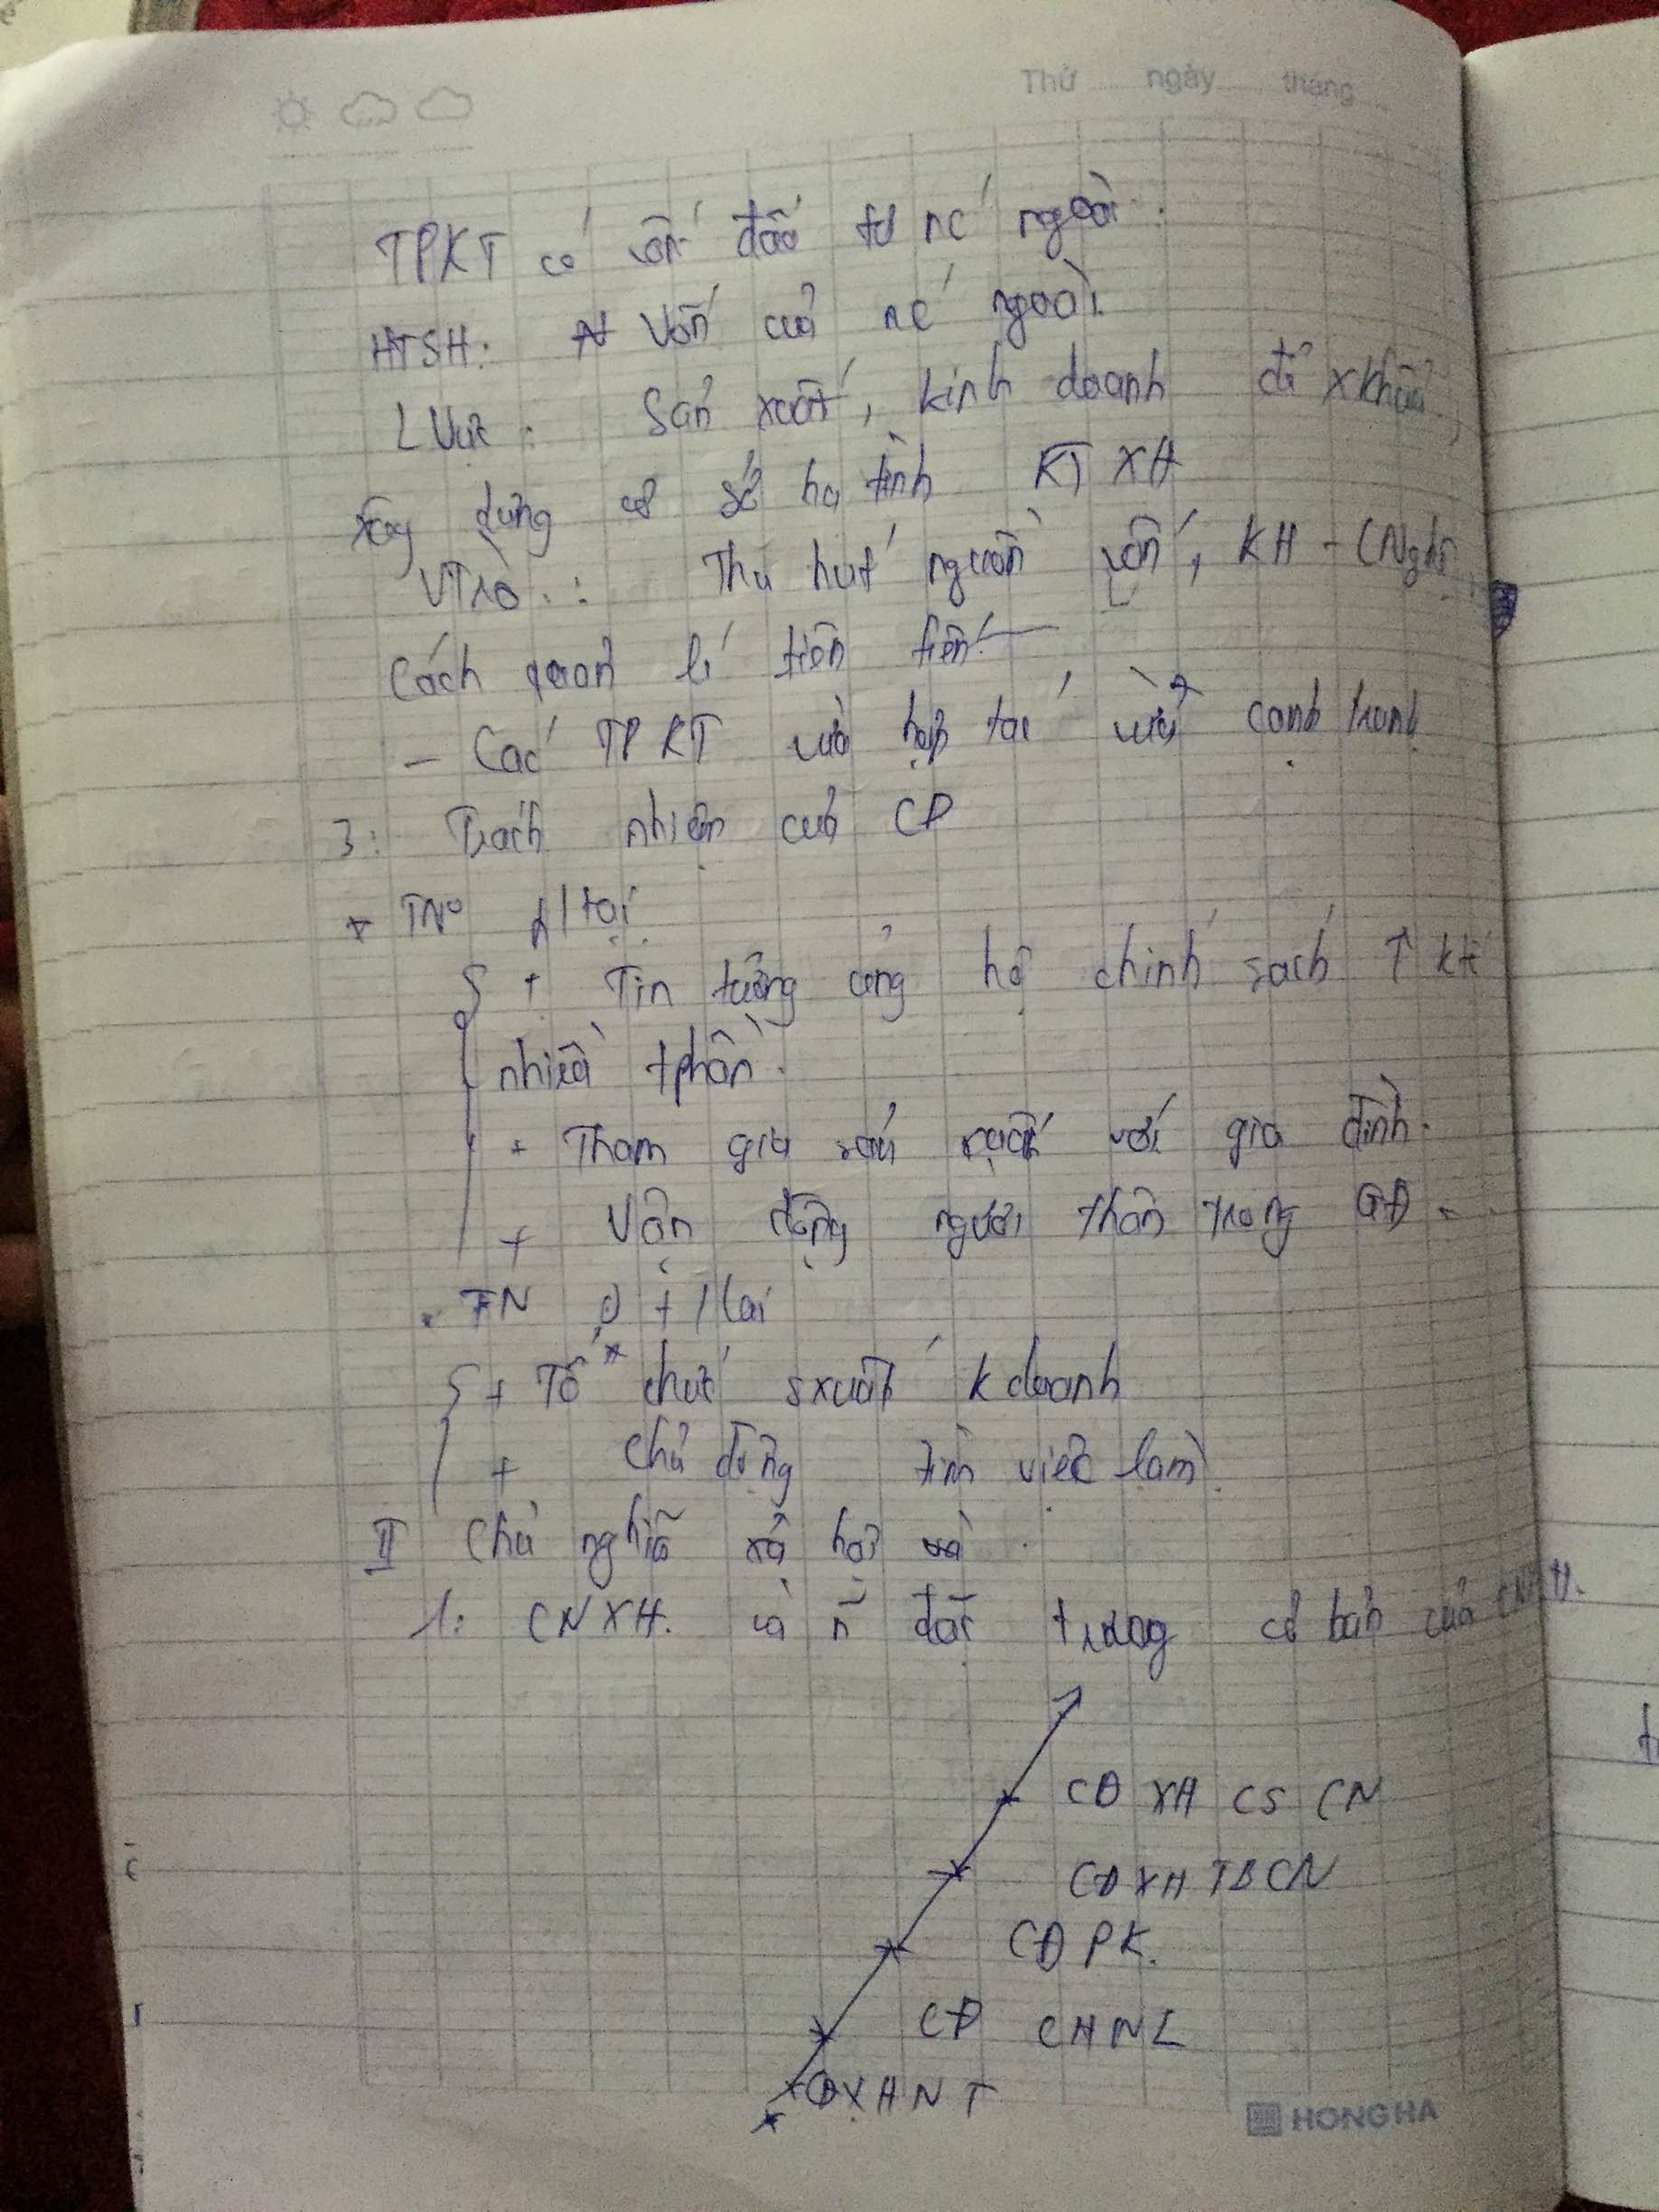 Thứ ngày tháng
TPKT có vốn đầu tư nc ngoài.
HTSH: Vốn của nc ngoài.
LVực: Sản xuất, kinh doanh để xkhẩu,
xây dựng cơ sở hạ tình KT XH
VTrò: Thu hút nguồn vốn, KH - CNghệ
Cách quản lí tiên tiến.
- Các TPKT vừa hợp tác vừa cạnh tranh
3: Trách nhiệm của CD
+ TNo h/tại
+ Tin tưởng ủng hộ chính sách ↑ ktế
nhiều tphần.
+ Tham gia sản xuất với gia đình.
+ Vận động người thân trong GĐ.
. TN ở t/lai
+ Tổ chức sxuất kdoanh
+ Chủ động tìm việc làm.
II Chủ nghĩa xã hội và
1: CNXH. và ~n đặc trưng cơ bản của CNXH.
CĐ XH CS CN
CĐ XH TBCN
CĐ PK.
CĐ CHNL
CĐXHNT
HONG HA